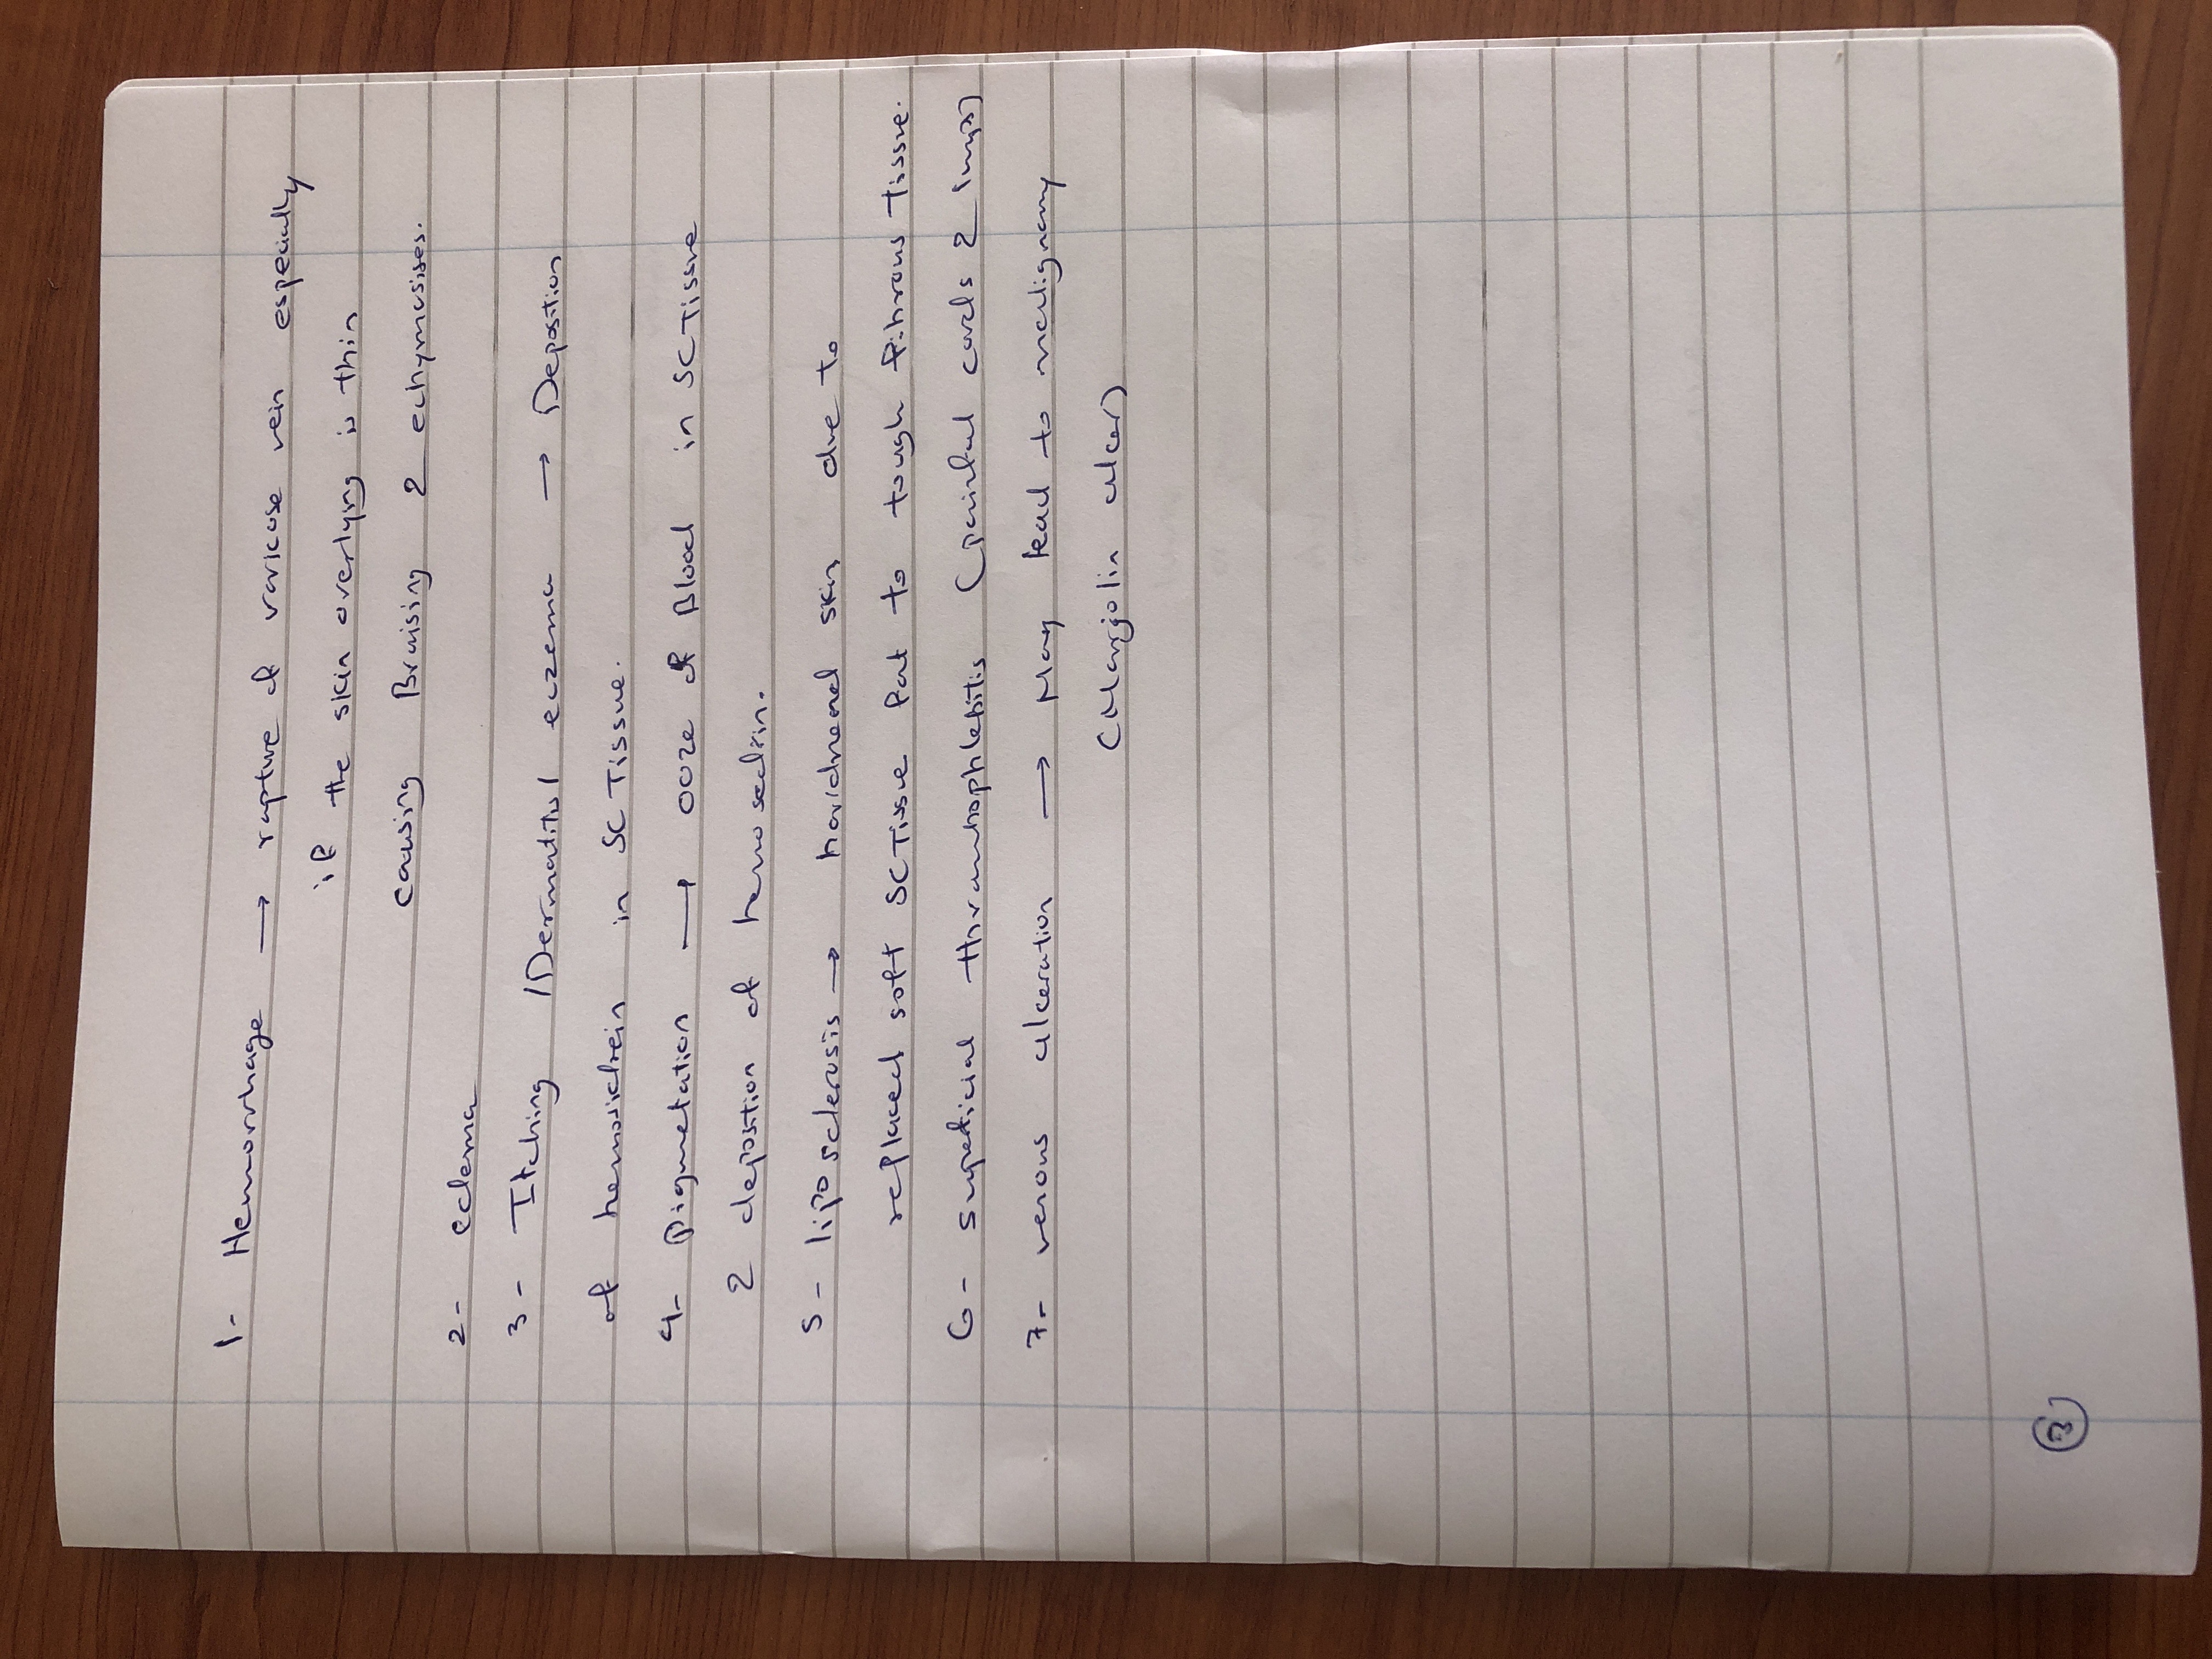 1- Hemorrhage → rupture of varicose vein especially
if the skin overlying is thin
causing Bruising 2 echymosises.
2- edema
3- Itching / Dermatitis / eczema → Deposition
of hemosidrein in SC Tissue.
4- Pigmetation → ooze of Blood in SC Tissue
2 deposition of hemosedrin.
5- liposclerosis → hardnened skin due to
replaced soft SC Tissue fat to tough fibrous tissue.
6- superficial thrombophlebitis (painful cords 2 lumps)
7- venous ulceration → May lead to malignany
(Marjolin ulcer)
3